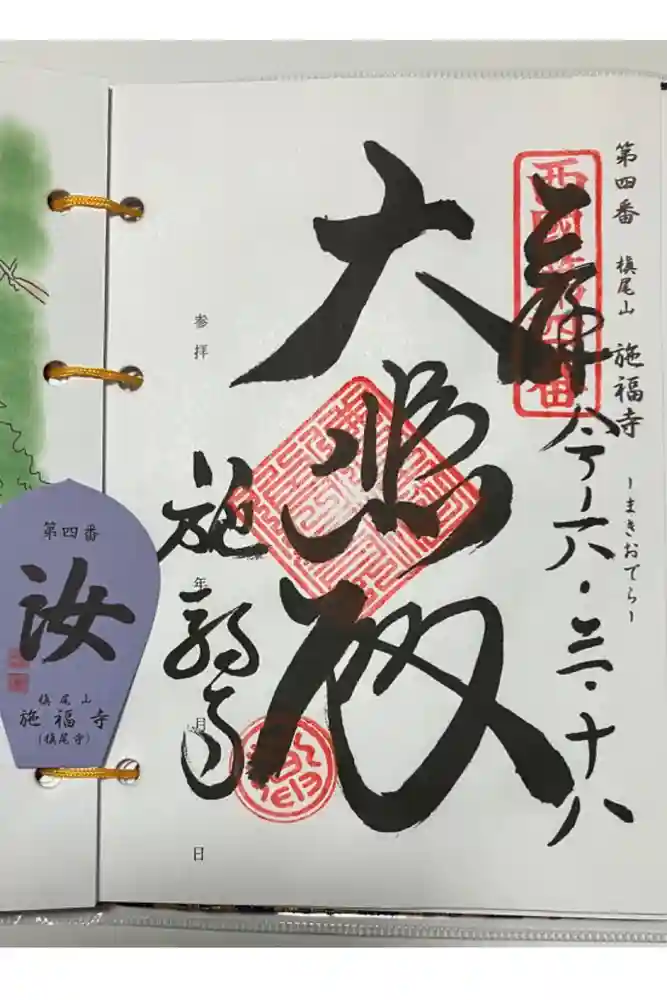 第四番 槇尾山 施福寺 -まきおでら-
西國第四番
奉拝 令一六・三・十八
大悲殿
参拝 年 月 日
施福寺
第四番
汝
槇尾山
施福寺
(槇尾寺)